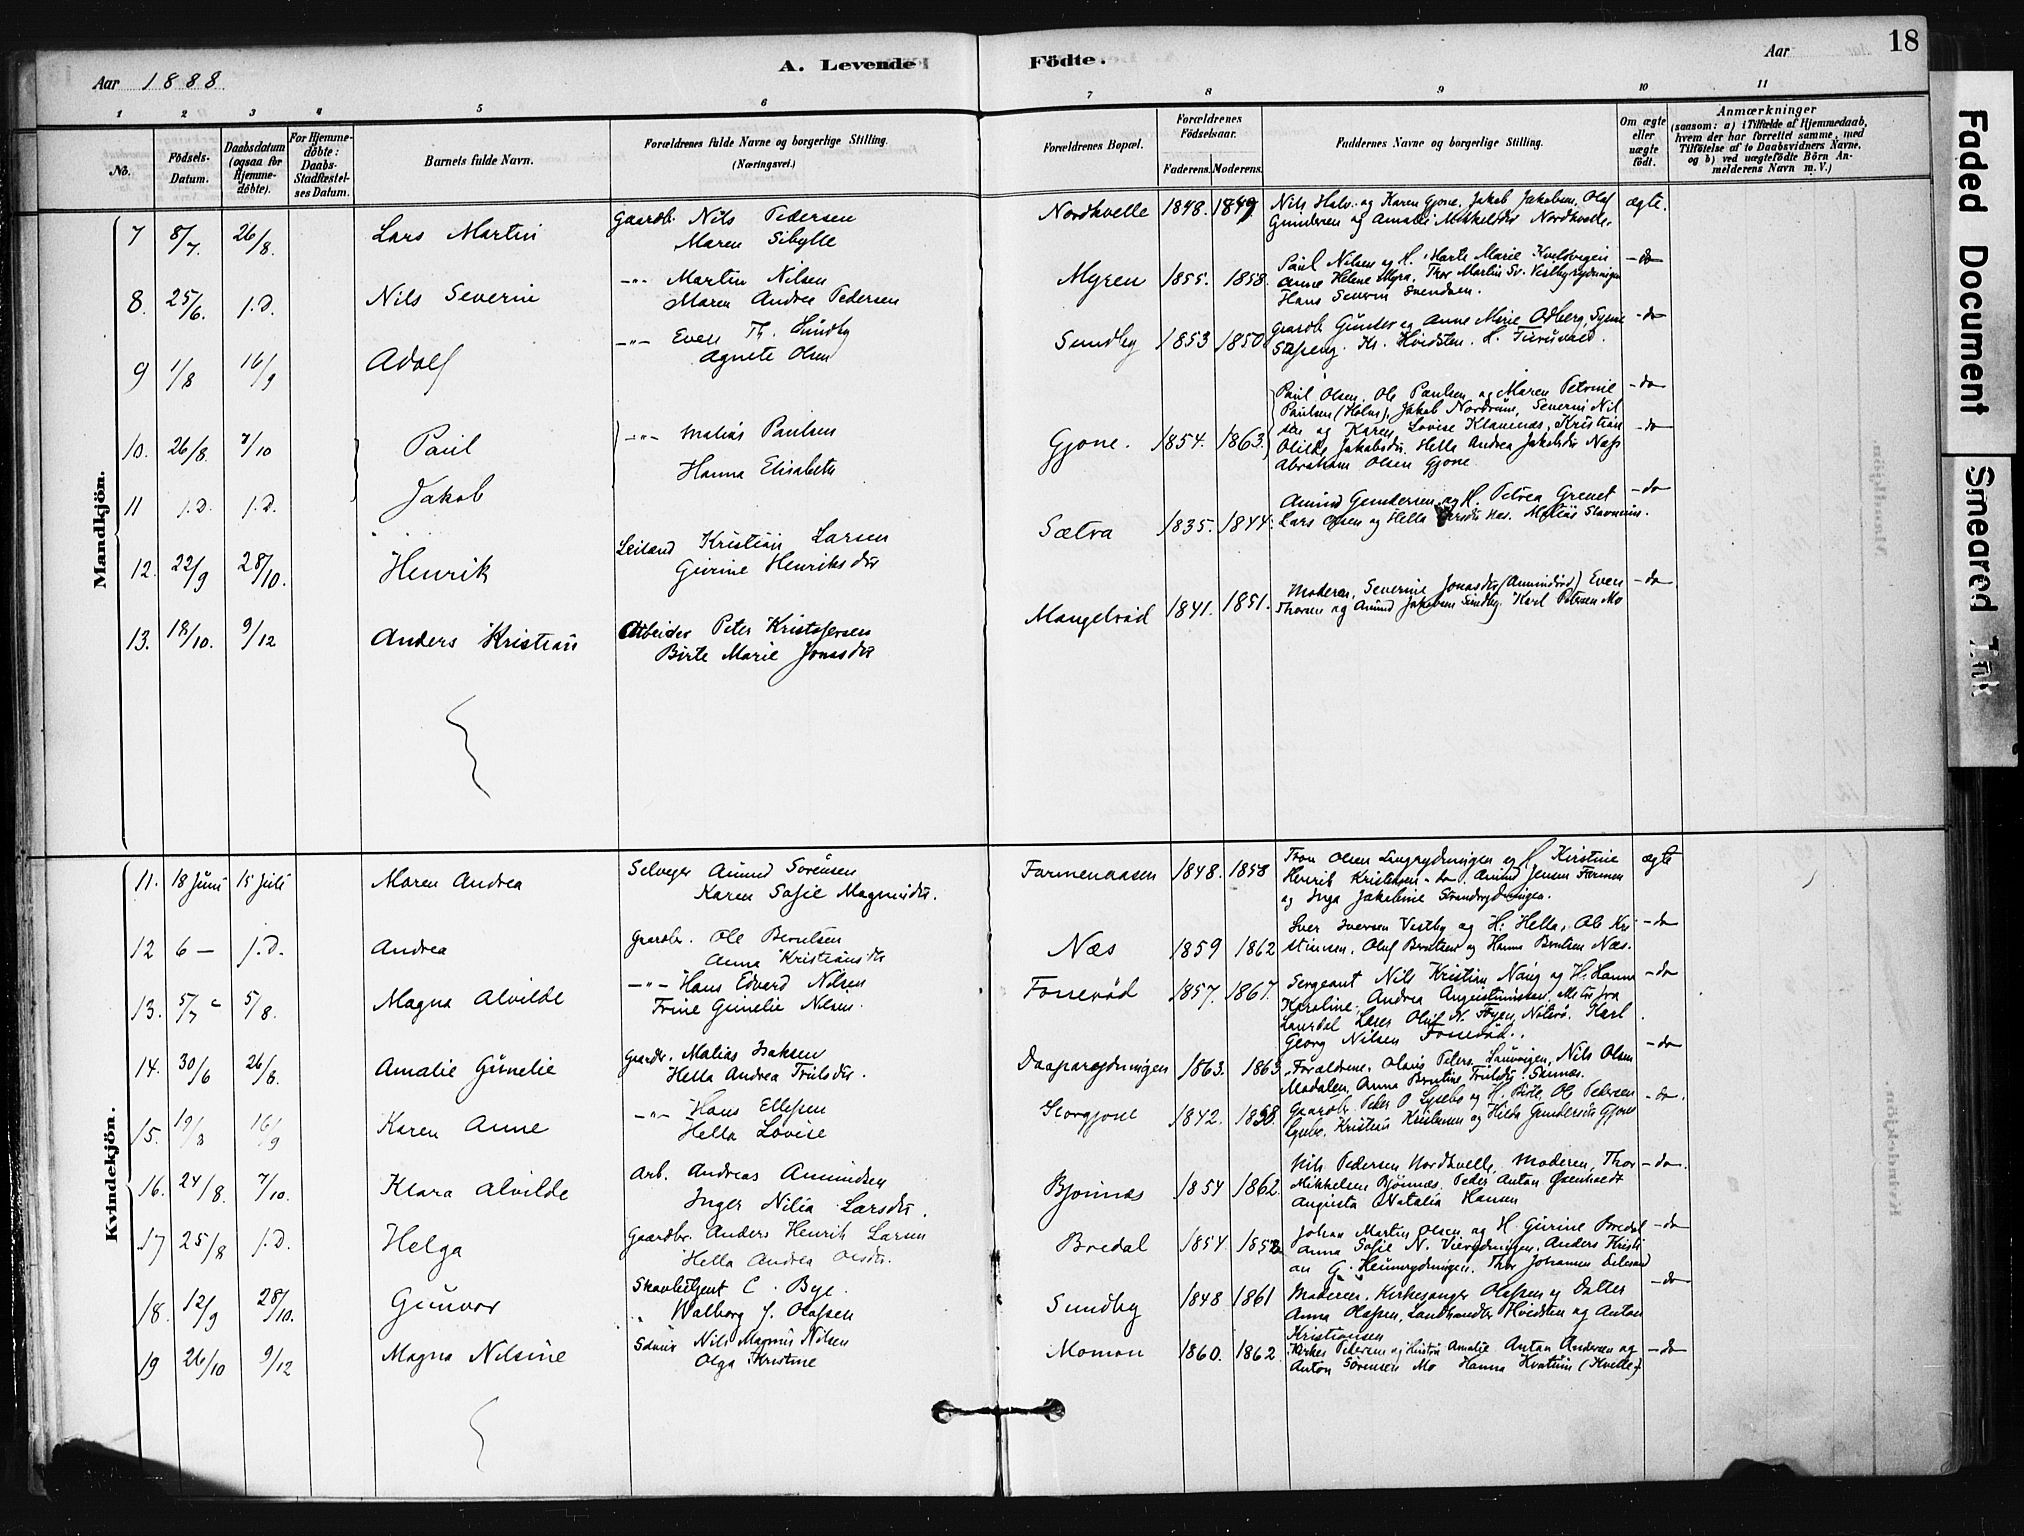 Aar 1888.
A. Levende Födte.
Aar
18
1 2 3 4 5 6 7 8 9 10 11
No.
Födsels-Datum.
Daabsdatum (ogsaa for Hjemmedöbte).
For Hjemmedöbte: Daabs-Stadfæstelses Datum.
Barnets fulde Navn.
Forældrenes fulde Navne og borgerlige Stilling. (Næringsvei.)
Forældrenes Bopæl.
Forældrenes Födselsaar.
Faderens. Moderens.
Faddernes Navne og borgerlige Stilling.
Om ægte eller uægte födt.
Anmærkninger
(saasom: a) i Tilfælde af Hjemmedaab, hvem der har forrettet samme, med Tilföielse af to Daabsvidners Navne, og b) ved uægtefödte Börn Anmelderens Navn m.V.)
Mandkjön.
7 8/7. 26/8. Lars Martin Gaardb. Nils Pedersen Nordkvelle 1848. 1849 Nils Halv. og Karen Gjone, Jakob Jakobsen, Olaf ægte.
Maren Sibylle Gundersen og Amalie Mikkelsdtr Nordkvelle.
8. 25/6. J.D. Nils Severin -"- Martin Nilsen Myren 1855. 1858. Paul Nilsen og H. Marte Marie -do
Maren Andrea Pedersen Anne Helene Myra, Thor Martin Sv. Vestbyrydningen
Hans Severin Svendsen.
9 1/8 16/9 Adolf -"- Even Th. Sundby Sundby 1853 1850 Gaardb. Gunder og Anne Marie Odberg, -do
Agnete Olsen Kr. Hvidsten. L.
10. 26/8. 7/10 Paul -"- Matias Paulsen Gjone. 1854. 1863. Paul Olsen, Ole Paulsen og Maren Petrine -do
Hanna Elisabeth Paulsen (Holm), Jakob Nordrum, Severin Nil
sen og Karen Lovise Klavenæs, Kristian -do
11 J.D. J.D. Jakob Jakobsdtr. Hella Andrea Jakobsdtr Næss
Abraham Olsen Gjone
12. 22/9 28/10. Henrik Leiland Kristian Larsen Sætra 1835. 1844. Amund Gundersen og H. Petrea Grenet -do
Gurine Henriksdtr Lars Olsen og Hella
13. 18/10. 9/12 Anders Kristian Arbeider Peter Kristofersen Mangelrød 1841. 1851. Moderen, Severine Jonasdtr (Amundrød) Even -do
Birte Marie Jonasdtr Thorsen og Amund Jakobsen Sundby. Karl Petersen Mo
Kvindekjön.
11. 18 Juni 15 Juli Maren Andrea Selveger Amund Sörensen Farmenaasen 1848. 1858 Tron Olsen og H. Kirstine ægte
Karen Sofie Magnusdtr. Henrik Kristensen -do. Amund Jensen Farmen
og Inga Jakobine Strandrydningen.
12 6 - J.D. Andrea Gaardbr. Ole Berntsen Næs 1859 1862 Iver Iversen Vestby og H. Hella, Ole Kri -do
Anna Kristiansdtr stiansen, Oluf Berntsen og Hanna Berntsen Næs.
13. 5/7 5/8. Magna Alvilde -"- Hans Edvard Nilsen Fonerød 1857. 1867. Sergeant Nils Kristian Nang og H. Hanna -do
Trine Gunelie Nilsen. Karoline, Andrea fra
Laurdal Oluf N. Nøterø. Karl
Georg Nilsen Fonerød.
14. 30/6 26/8. Amalie Gunelie Gaardbr. Matias Isaksen Daaparydningen 1863. 1863. Forældrene, Olaus Peters. Nils Olsen -do
Hella Andrea Trulsdtr. Modalen, Anna Berntine Trulsdtr.
15. 19/8 16/9 Karen Anne -"- Hans Ellefsen Storgjone 1842. 1858. Gaardbr. Peder O Lysebo og H. Birte, Ole Pedersen -do.
Hella Lovise Lysebo. Kristian Kristensen og Hilda Gundersen Gjone
16. 24/8. 7/10. Klara Alvilde Arb. Andreas Amundsen Bjonnæs 1854 1862 Nils Pedersen Nordkvelle, Moderen, Thor -do.
Inger Nilia Larsdtr. Mikkelsen Bjönnæs, Peder Anton
Augusta Natalia Hansen
17 25/8 J.D. Helga Gaardbr. Anders Henrik Larsen Bredal 1854 Johan Martin Olsen og H. Gurine Bredal -do
Hella Andrea Olsdtr. Anna Sofie N. Anders Kristi
an G. Heimrydningen, Thor Johannes
18. 12/9 28/10. Gunvor Skovbetjent C. Bye. Sundby 1848 1861 Moderen, Kirkesanger Olafsen og Datter -do
" Walborg J. Olafsen Anna Olafsen, Landhandler Hvidsten og Anton
Kristiansen
19 26/10 9/12 Magna Nilsine Nils Magnus Nilsen Momon 1860. 1862. Pedersen og Hustru Amalie Anton Andersen og -do
Olga Kristine Anton Sörensen Mo Hanna (Kvelle)
Faded Document
Smeared Ink